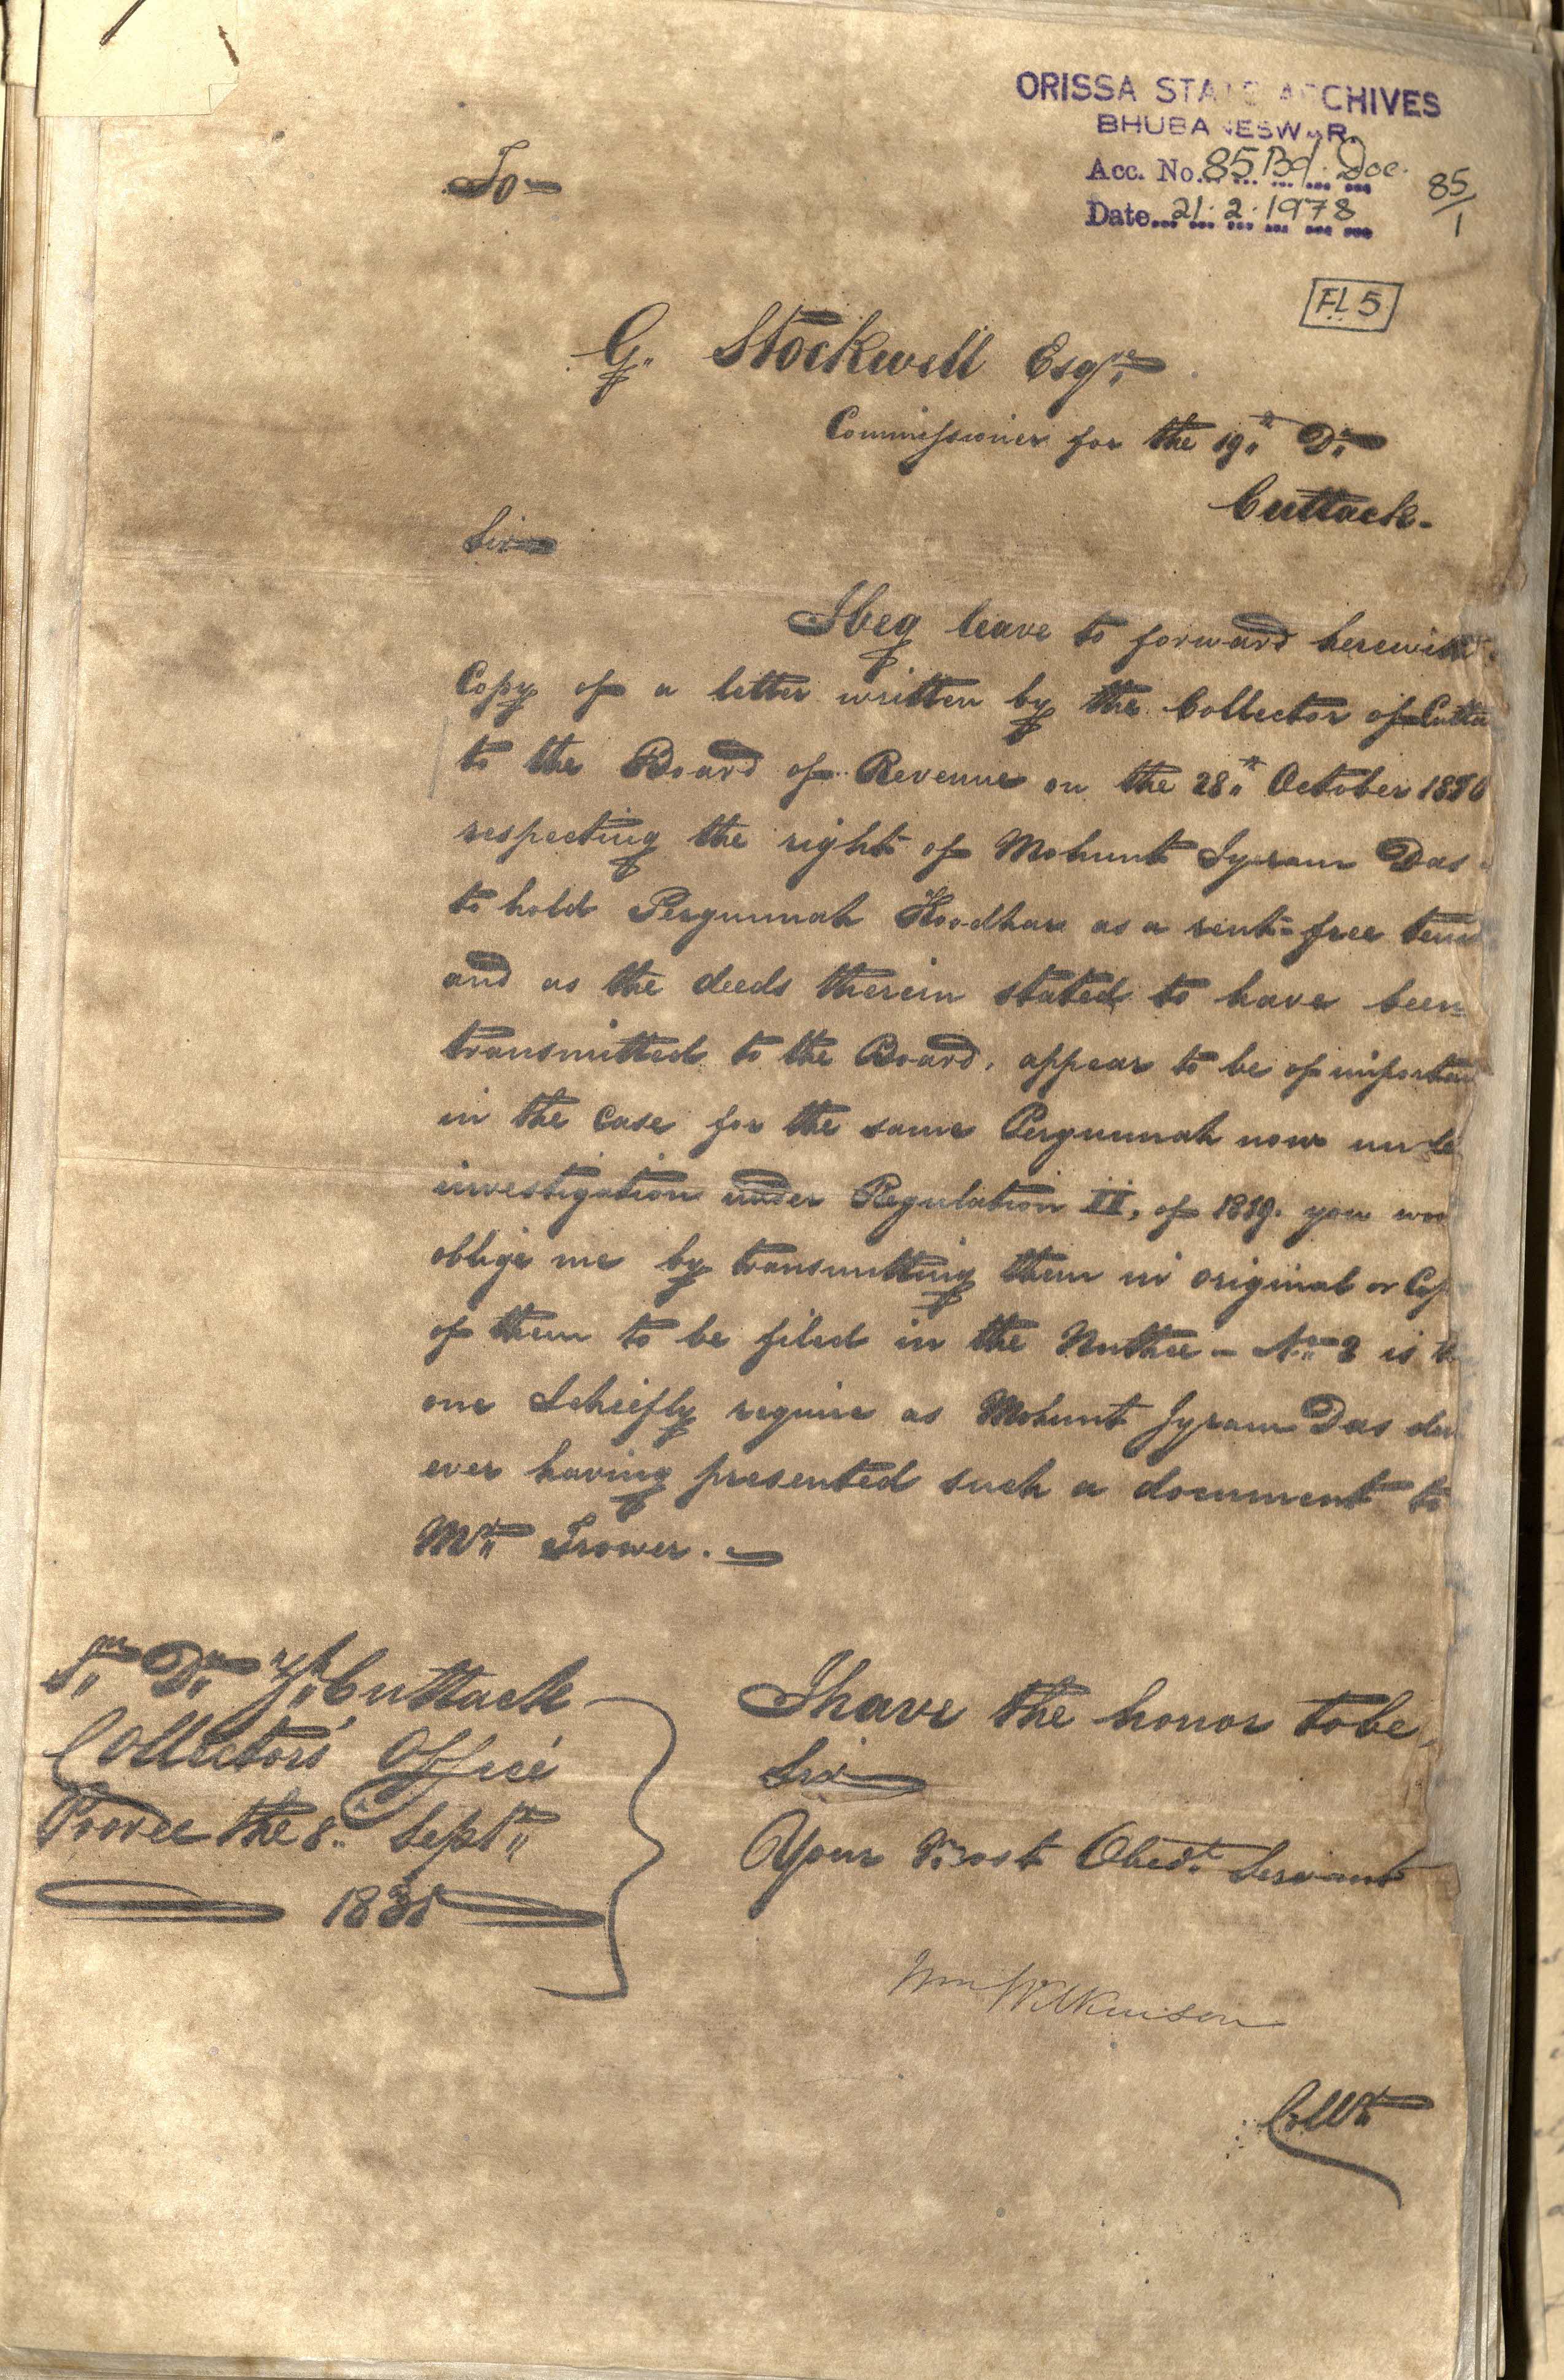 ORISSA STATE ARCHIVES
BHUBANESWAR.
Acc. No. 85 Bd. Doc.
Date 21.2.1978
85/1
FL 5
To
G. Stockwell Esqre
Commissioner for the 19th Dn
Cuttack.
Sir
I beg leave to forward herewith
Copy of a letter written by the Collector of Cutta
to the Board of Revenue on the 28th October
respecting the right of Mohunt Jyram Das
to hold Pergunnah as a rent-free tenu
and as the deeds therein stated to have been
transmitted to the Board, appear to be of importan
in the case for the same Pergunnah now unde
investigation under Regulation II, of 1819. you wou
oblige me by transmitting them in original or Cop
of them to be filed in the Nuthee - No 8 is th
one I chiefly require as Mohunt Jyram Das den
ever having presented such a document to
Mr Trower.
Sn Dn Zh Cuttack
Collectors Office
Pooree the 8th Septr
183
I have the honor to be,
Sir
Your Most Obedt Servant
Wm Wilkinson
Collr